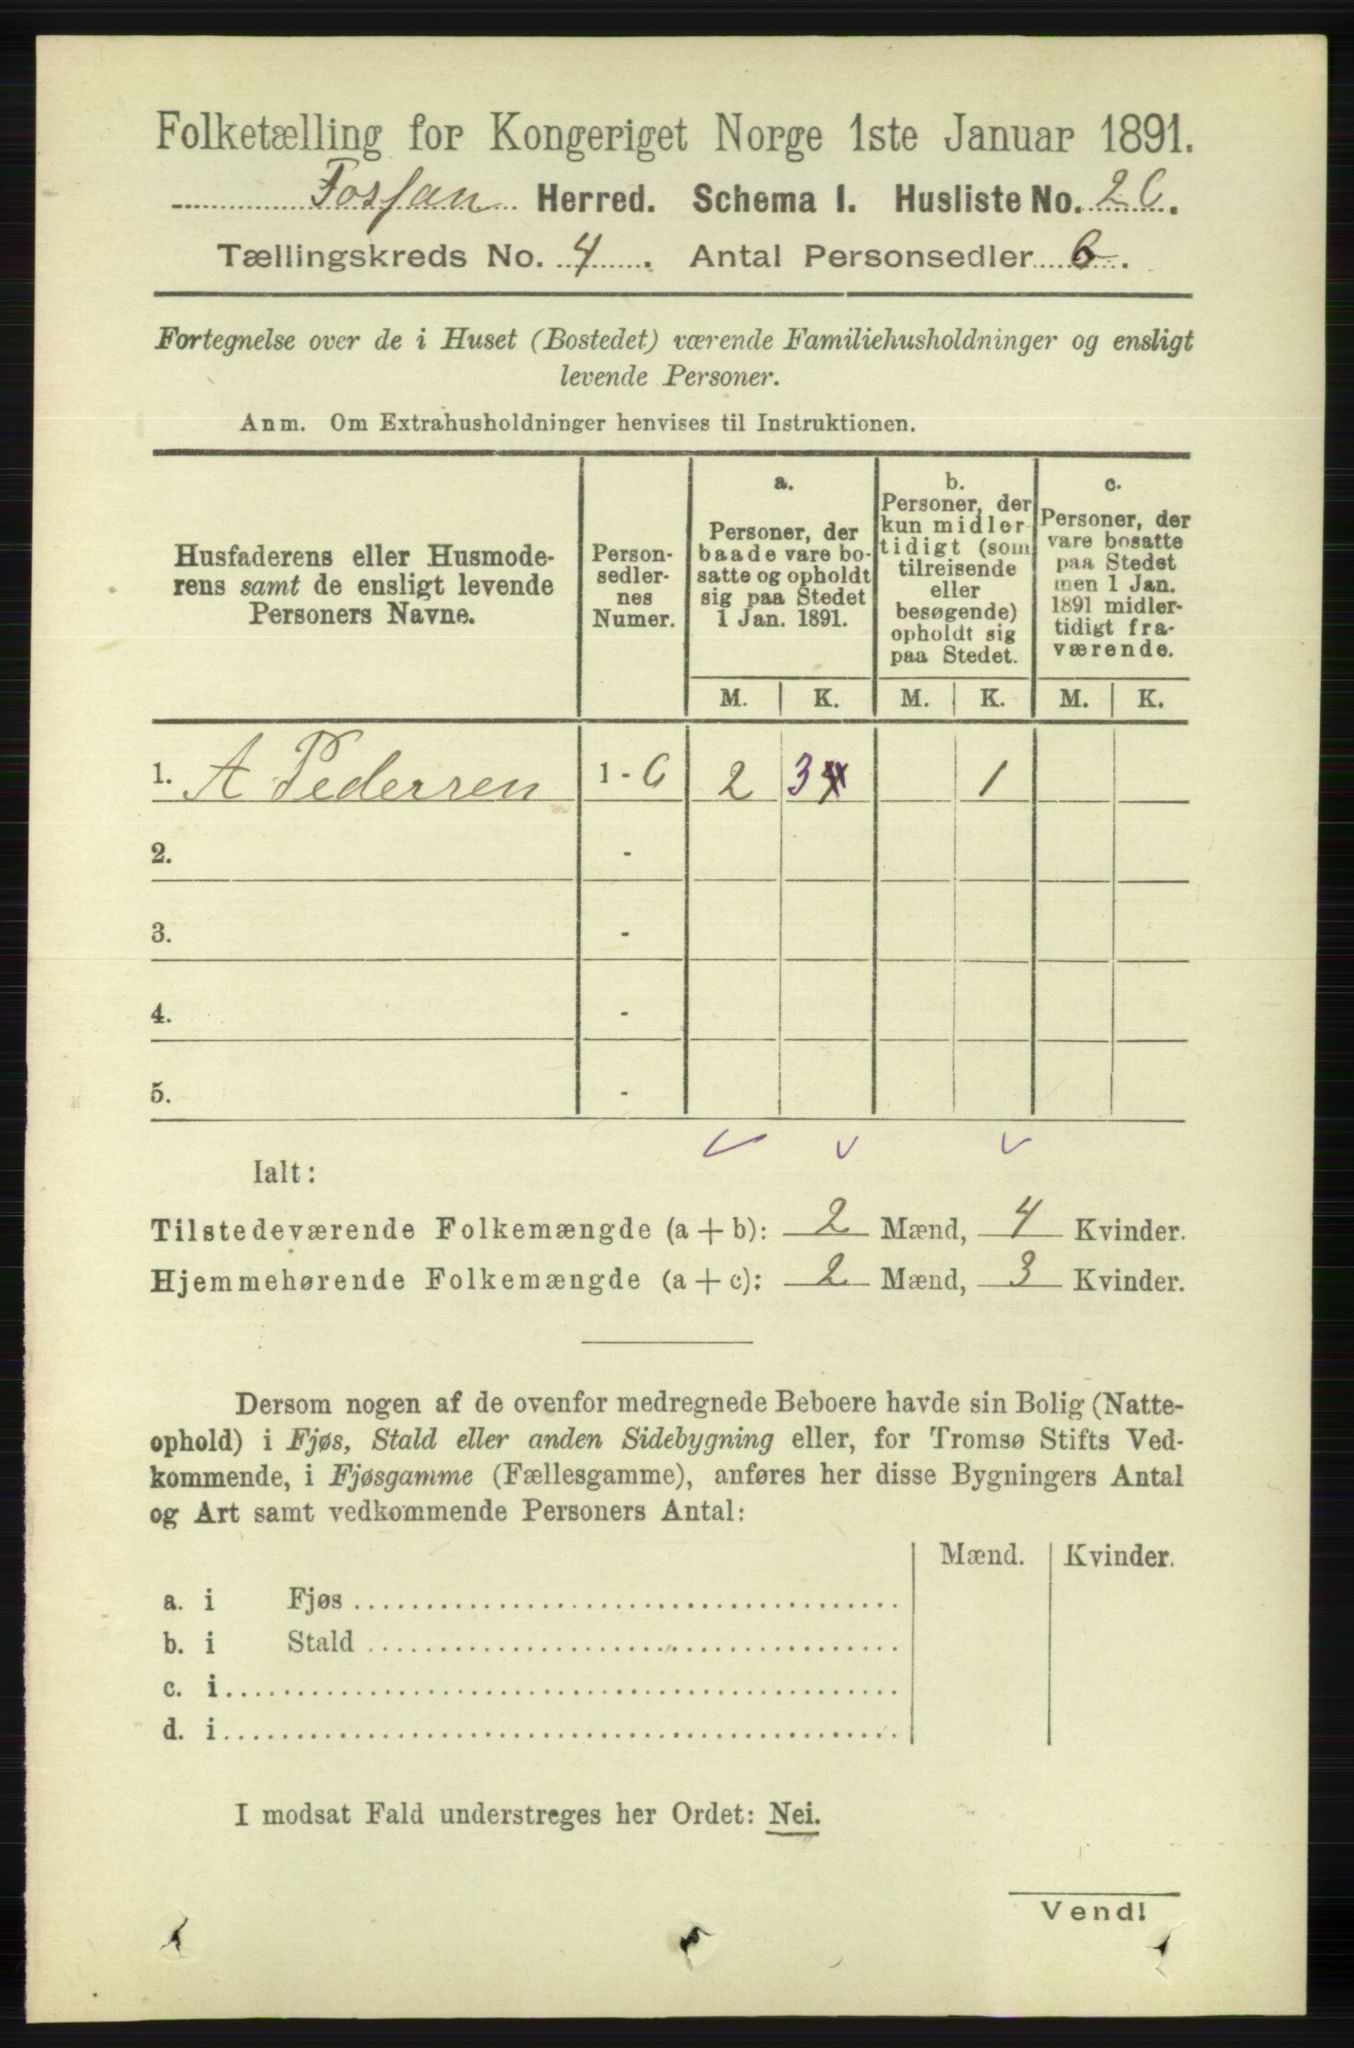 Folketælling for Kongeriget Norge 1ste Januar 1891.
Fosfan Herred. Schema I. Husliste No. 26.
Tællingskreds No. 4. Antal Personsedler 6.
Fortegnelse over de i Huset (Bostedet) værende Familiehusholdninger og ensligt
levende Personer.
Anm. Om Extrahusholdninger henvises til Instruktionen.
Husfaderens eller Husmode-
rens samt de ensligt levende
Personers Navne.
Person-
sedler-
nes
Numer.
a.
Personer, der
baade vare bo-
satte og opholdt
sig paa Stedet
1 Jan. 1891.
b.
Personer, der
kun midler-
tidigt (som
tilreisende
eller
besøgende)
opholdt sig
paa Stedet.
c.
Personer, der
vare bosatte
paa Stedet
men 1 Jan.
1891 midler-
tidigt fra-
værende.
M. K. M. K. M. K.
1. A Pedersen 1 - 6 2 3 4 1
2. -
3. -
4. -
5. -
Ialt:
Tilstedeværende Folkemængde (a + b): 2 Mænd, 4 Kvinder.
Hjemmehørende Folkemængde (a + c): 2 Mænd, 3 Kvinder.
Dersom nogen af de ovenfor medregnede Beboere havde sin Bolig (Natte-
ophold) i Fjøs, Stald eller anden Sidebygning eller, for Tromsø Stifts Ved-
kommende, i Fjøsgamme (Fællesgamme), anføres her disse Bygningers Antal
og Art samt vedkommende Personers Antal:
Mænd. Kvinder.
a. i Fjøs
b. i Stald
c. i
d. i
I modsat Fald understreges her Ordet: Nei.
Vend!